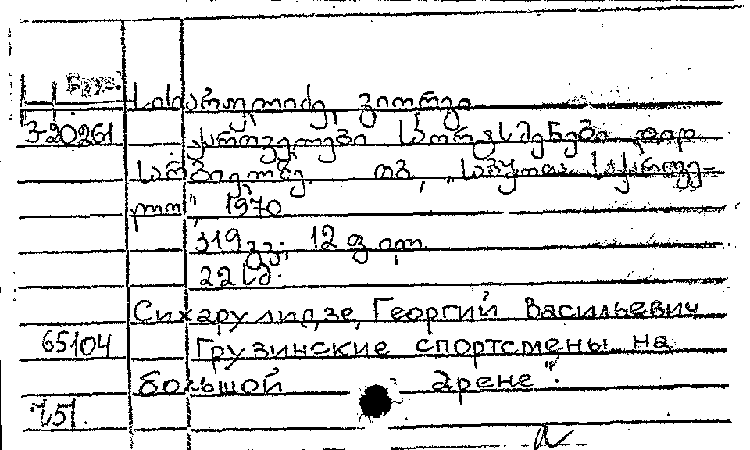 სიხარულიძე, გიორგი
3-20261 ქართველები სპორტსმენები დიდ
სარბიელზე. თბ., „საბჭოთა საქართვე-
ლო", 1970
319 გვ; 12 ფ. ილ.
22 სმ.
Сихарулидзе, Георгий Васильевич
65104 Грузинские спортсмены на
большой арене".